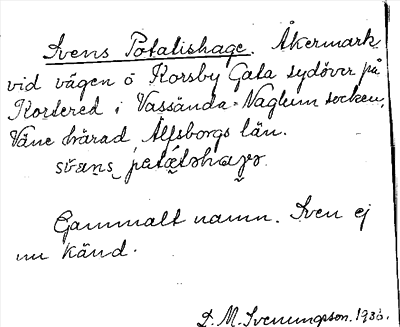 Svens Potatishage. Åkermark
vid vägen ö Korsby Gata sydöver på
Kortered i Vassända-Naglum socken,
Väne härad, Älfsborgs län.
Gammalt namn. Sven ej
nu känd.
D. M. Svenungsson. 1933.